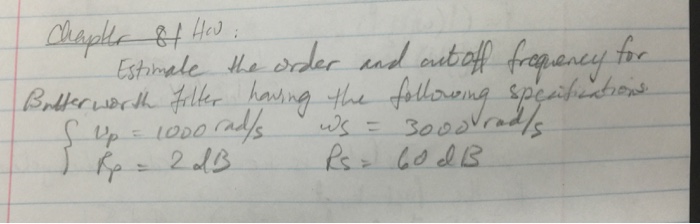 Chapter 8 / HW:
Estimate the order and cutoff frequency for
Butterworth filter having the following specifications
{ Wp = 1000 rad/s Ws = 3000 rad/s
Rp = 2 dB Rs = 60 dB